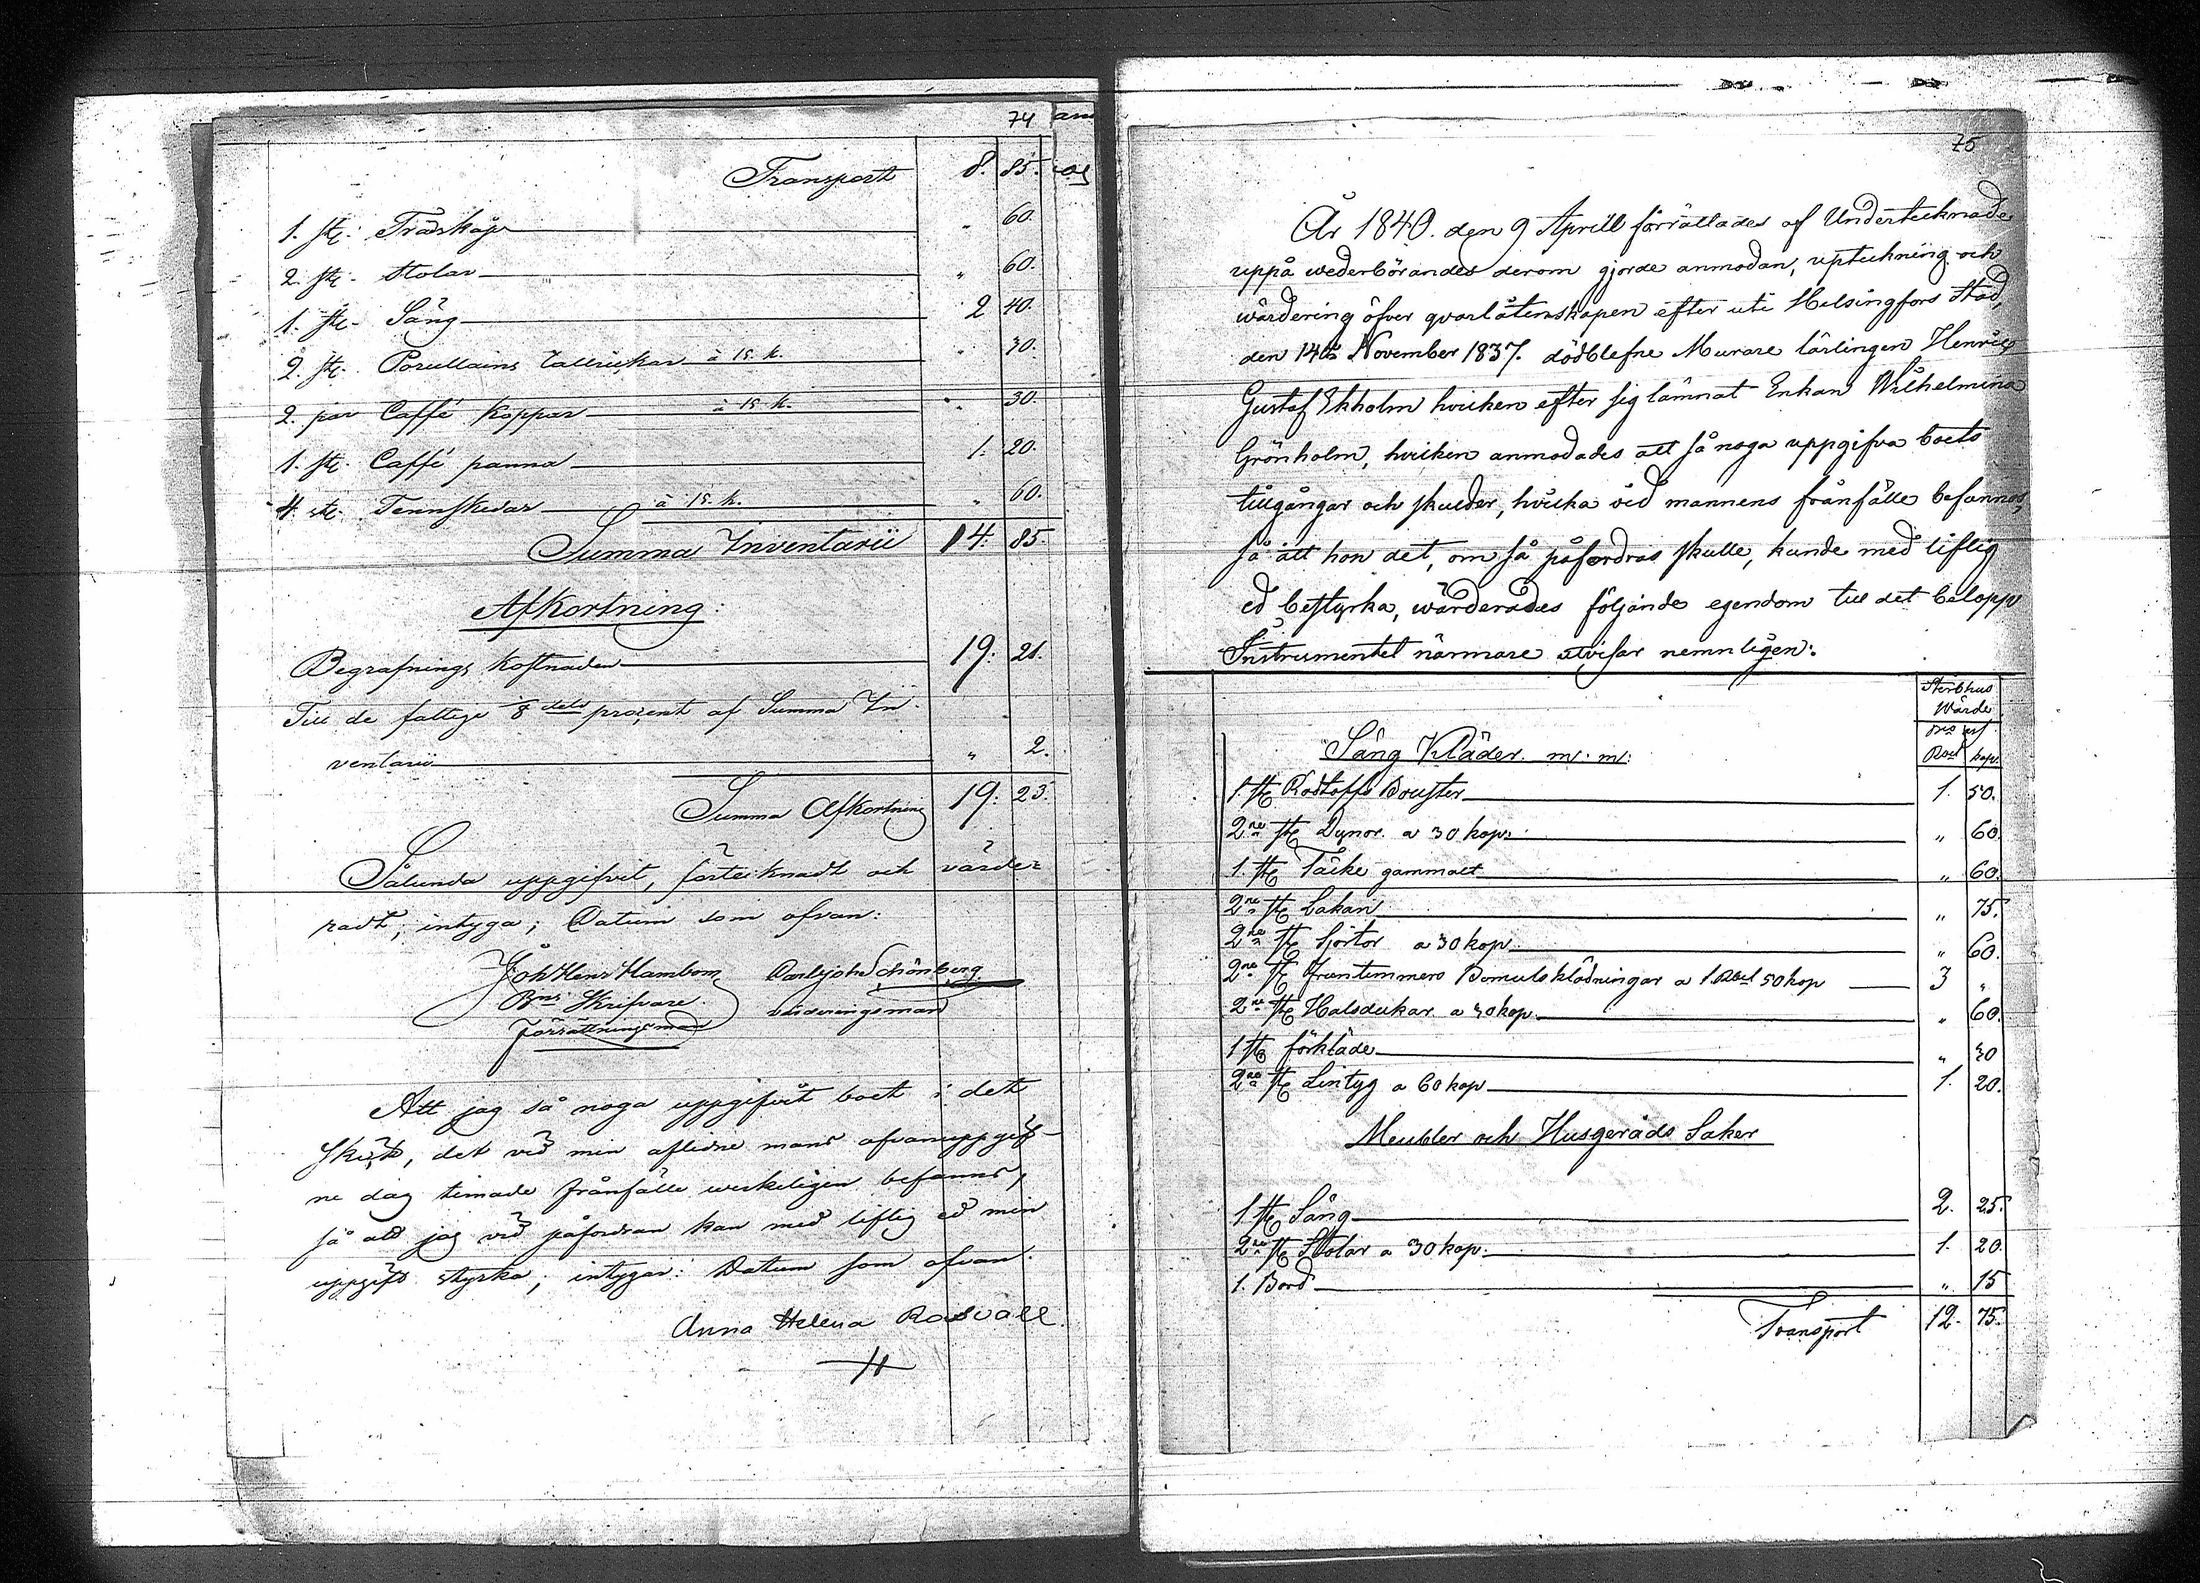 74
Transport 8. 85.
1. st: Träskåp " 60.
2. st: Stolar " 60.
1. st: Säng 2 40.
2. st: Porcellains Tallrickar à 15. k. " 30.
2. par Caffé Koppar à 15 k. " 30.
1. st: Caffé panna 1. 20.
4. st: Tennskedar à 15. k. " 60.
Summa Inventarii 14. 85.
Afkortning:
Begrafnings Kostnaden 19. 21.
Till de fattige 8 dels procent af Summa In-
ventarii " 2.
Summa Afkortning 19. 23.
Sålunda uppgifvit, förtecknadt och värde-
radt, intyga; Datum som ofvan:
Joh Henr Hambom Carl Joh Schönberg
Skrifvare. värderingsman
förrättningsman
Att jag så noga uppgifvit boet i det
skick, det vid min aflidne mans ofvanuppgif-
ne dag timade frånfälle werkeligen befanns,
så att jag vid påfordran kan med liflig ed min
uppgift styrka, intygar: Datum som ofvan.
Anna Helena Rosvall.
75
År 1840. den 9 Aprill förrättades af Undertecknade
uppå wederbörandes derom gjorde anmodan, uptekning och
wärdering öfver qvarlåtenskapen efter uti Helsingfors Stad,
den 14de November 1837. dödblefne Murare lärlingen Henric
Gustaf Ekholm hvilken efter sig lämnat Enkan Wilhelmina
Grönholm, hvilken anmodades att så noga uppgifva boets
tillgångar och skulder, hvilka vid mannens frånfälle befannos,
så att hon det, om så påfordras skulle, kunde med liflig
ed bestyrka, wärderades följande egendom till det belopp
Instrumentet närmare utvisar nemnligen:
Sterbhus
Wärde
Säng Kläder m. m: Rbl kop.
1 st Bouster 1. 50.
2ne st Dynor a 30 kop. " 60.
1. st Täcke gammalt " 60.
2ne st Lakan " 75.
2ne st Sjortor a 30 kop " 60.
2ne st fruntimmers Bomulsklädningar a 1 Rbl 50 kop 3 "
2ne st Halsdukar a 30 kop " 60.
1 st förkläde " 30
2ne st Lintyg a 60 kop 1. 20.
Meubler och Husgeråds Saker
1 st Säng 2. 25.
2ne st Stolar a 30 kop. 1. 20.
1. Bord " 15
Transport 12. 75.